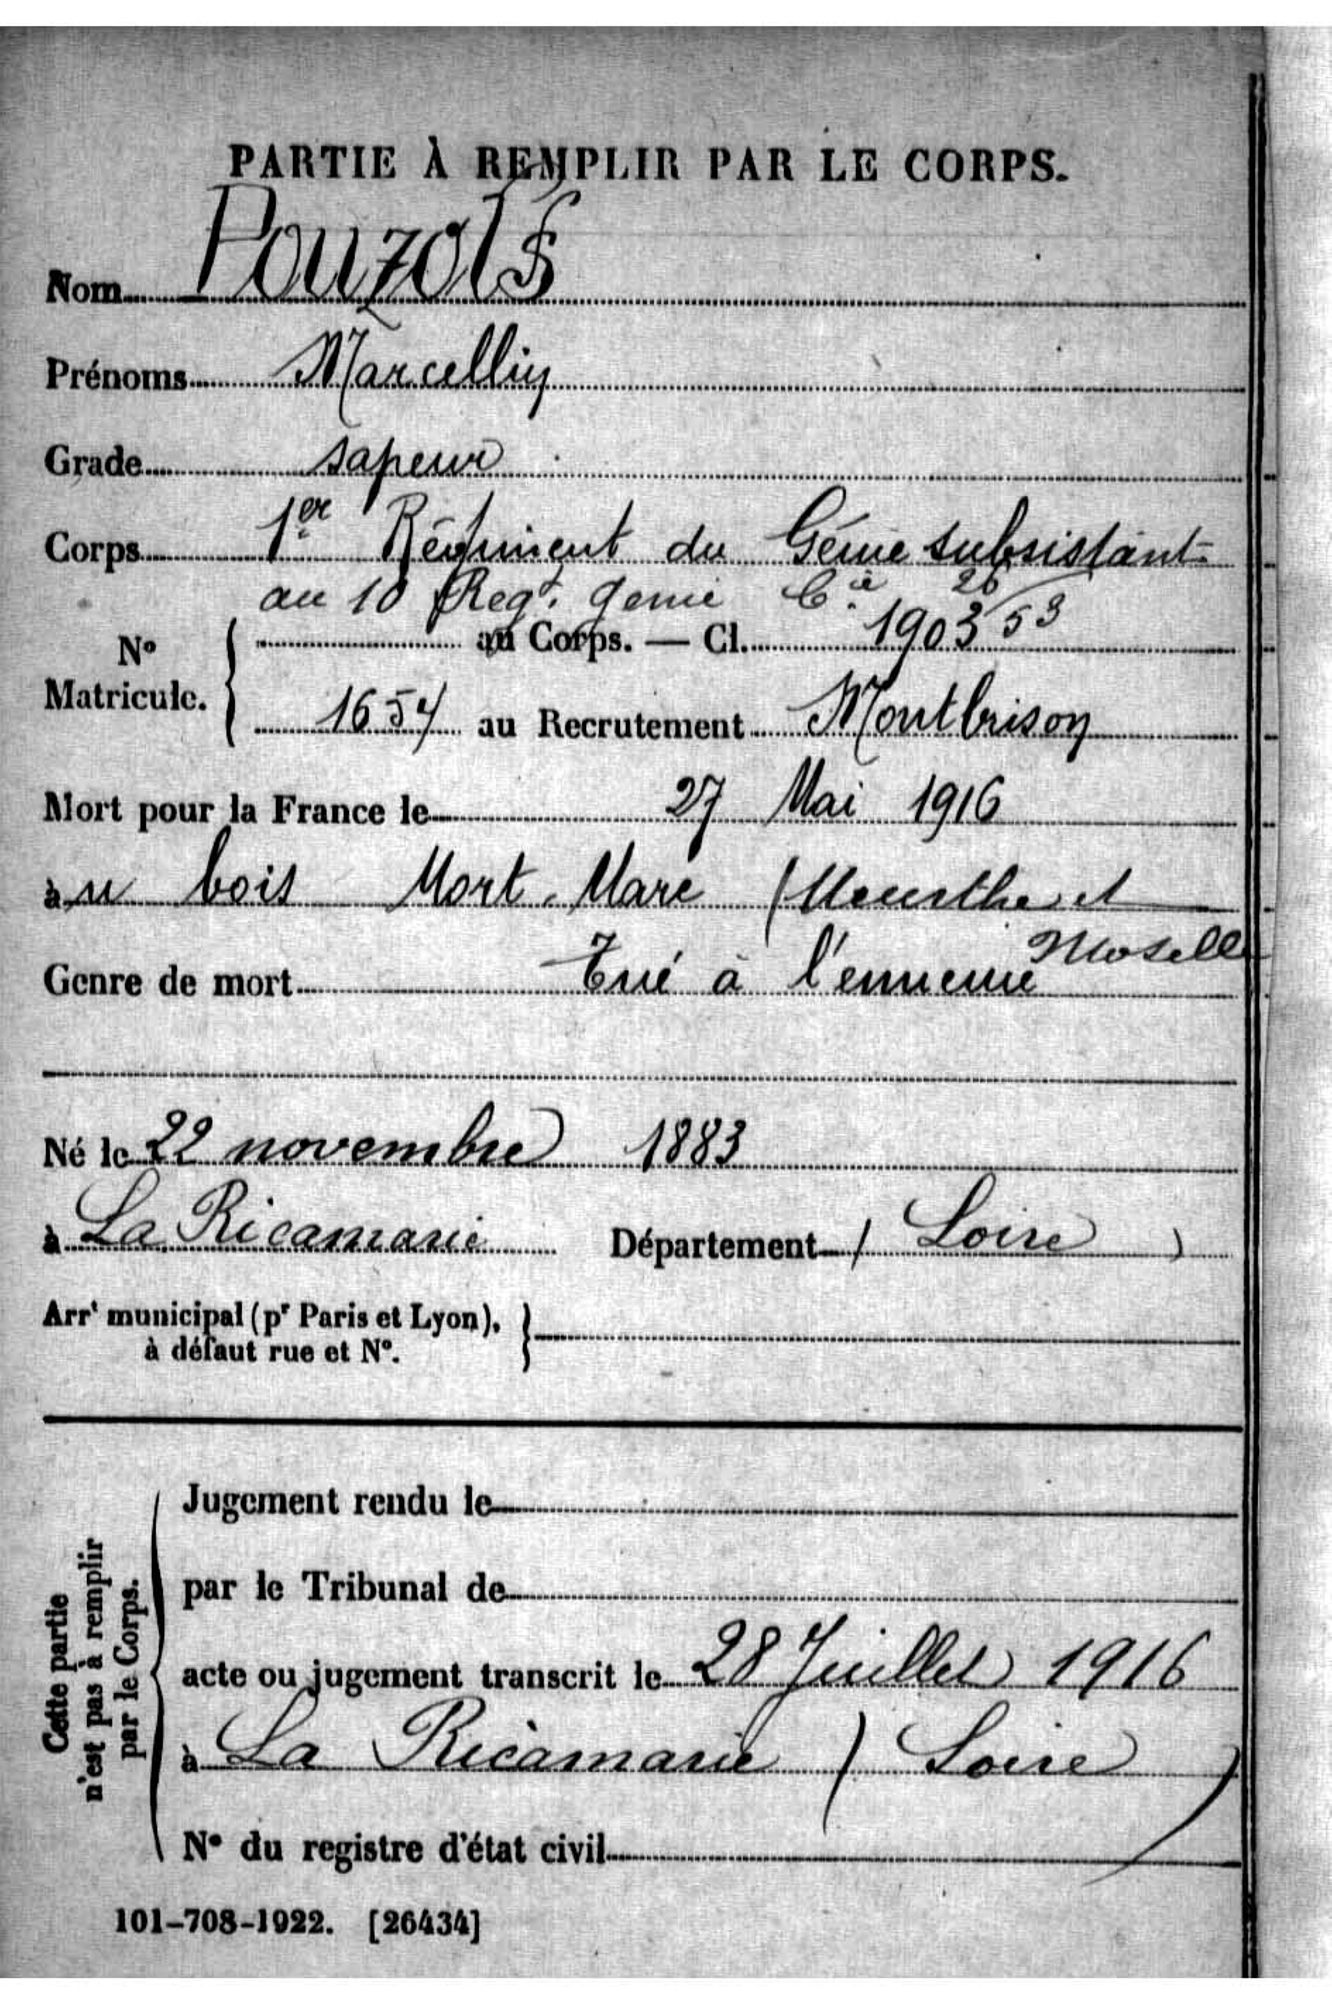 PARTIE À REMPLIR PAR LE CORPS.
Nom Pouzols
Prénoms Marcellin
Grade sapeur
Corps 1er Régiment du Génie subsistant
au 10 Regt. genie Cie 26/53
No Matricule. { au Corps. — Cl. 1903
1654 au Recrutement Montbrison
Mort pour la France le 27 Mai 1916
à u bois Mort-Mare (Meurthe et
Moselle
Genre de mort Tué à l'ennemi
Né le 22 novembre 1883
à La Ricamarie Département ( Loire )
Arrt municipal (pr Paris et Lyon), }
à défaut rue et No.
Cette partie
n'est pas à remplir
par le Corps.
Jugement rendu le
par le Tribunal de
acte ou jugement transcrit le 28 Juillet 1916
à La Ricamarie ( Loire )
No du registre d'état civil
101-708-1922. [26434]